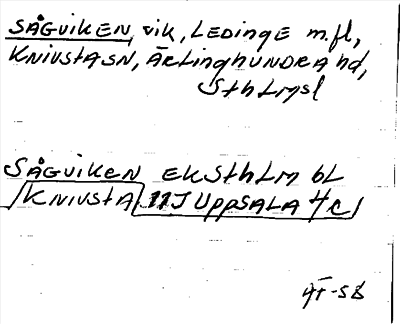 SÅGVIKEN, vik, LEDINGE m.fl,
KNIVSTA SN, ÄRLINGHUNDRA hd,
SthLMsl
SÅGVIKEN EK SthLM bL
KNIVSTA 11J UPPSALA 4c
ÄT-58